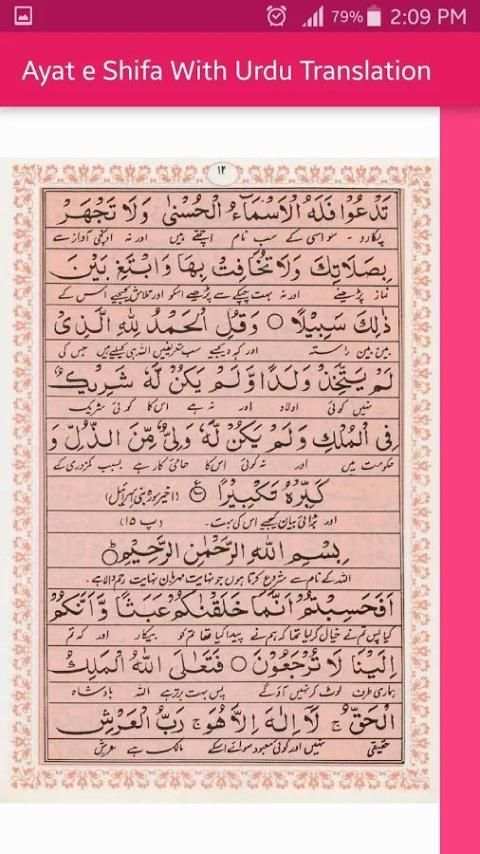 79% 2:09 PM
Ayat e Shifa With Urdu Translation
١٢
تَدْعُوْا فَلَهُ الْاَسْمَآءُ الْحُسْنٰى وَلَا تَجْهَرْ
پکارو - سو اسی کے سب نام اچھے ہیں اور نہ اونچی آواز سے
بِصَلَاتِكَ وَلَا تُخَافِتْ بِهَا وَابْتَغِ بَيْنَ
نماز پڑھیئے اور نہ بہت چپکے سے پڑھیے اسکو اور تلاش کیجیے اس کے
ذٰلِكَ سَبِيْلًا ۝ وَقُلِ الْحَمْدُ لِلّٰهِ الَّذِىْ
بین بین راستہ اور کہہ دیجیے سب تعریفیں اللہ ہی کیلیے ہیں جس کی
لَمْ يَتَّخِذْ وَلَدًا وَّلَمْ يَكُنْ لَّهٗ شَرِيْكٌ
نہیں کوئی اولاد اور نہ ہے اس کا کوئی شریک
فِى الْمُلْكِ وَلَمْ يَكُنْ لَّهٗ وَلِىٌّ مِّنَ الذُّلِّ وَ
حکومت میں اور نہ کوئی اس کا حامی کار ہے بسبب کمزوری کے
كَبِّرْهُ تَكْبِيْرًا ۝ (اخیر سورۃ بنی اسرائیل)
اور بڑائی بیان کیجیے اس کی بہت۔ (پ ١٥)
بِسْمِ اللّٰهِ الرَّحْمٰنِ الرَّحِيْمِ
اللہ کے نام سے شروع کرتا ہوں جو نہایت مہربان نہایت رحم والا ہے۔
اَفَحَسِبْتُمْ اَنَّمَا خَلَقْنٰكُمْ عَبَثًا وَّاَنَّكُمْ
کیا پس تم نے خیال کر لیا تھا کہ ہم نے پیدا کیا تھا تم کو بیکار اور کہ تم
اِلَيْنَا لَا تُرْجَعُوْنَ ۝ فَتَعٰلَى اللّٰهُ الْمَلِكُ
ہماری طرف لوٹ کر نہیں آؤ گے پس بہت برتر ہے اللہ بادشاہ
الْحَقُّ ۚ لَآ اِلٰهَ اِلَّا هُوَ ۚ رَبُّ الْعَرْشِ
حقیقی نہیں اور کوئی معبود سوائے اسکے مالک ہے عرش